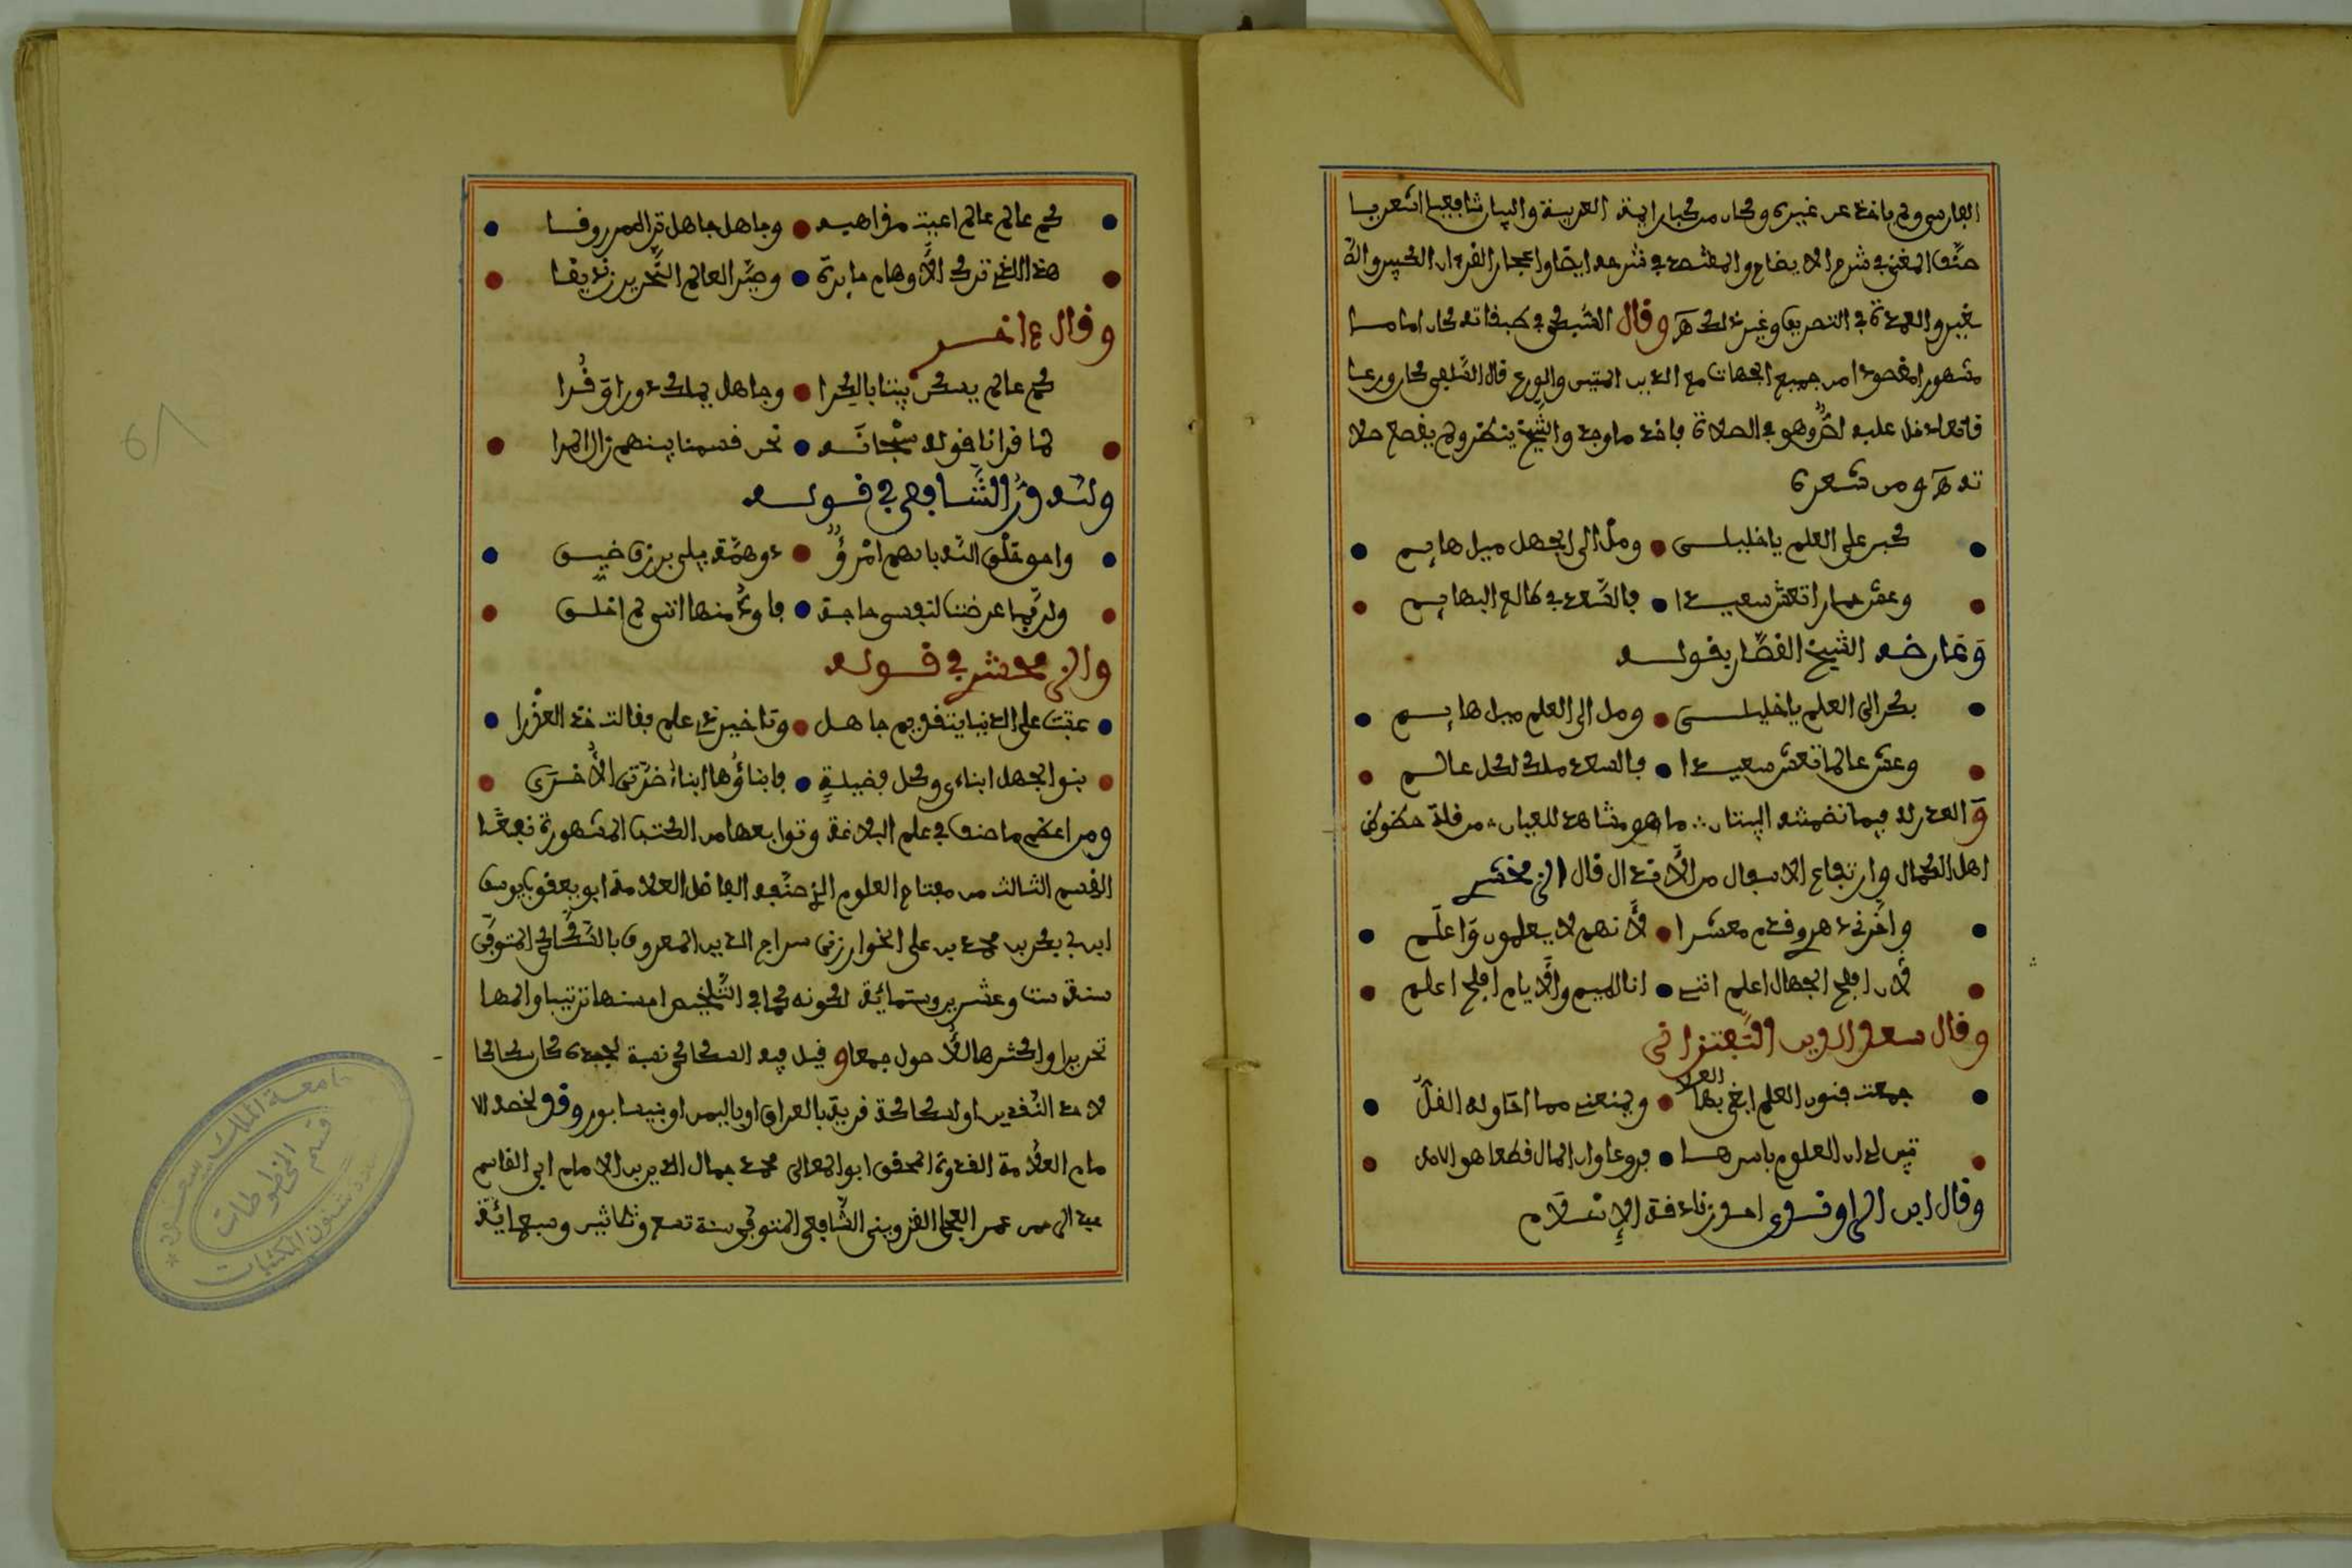 الفارسي ولم ياخذ عن غيره وكان من كبار ايمة العربية والبيان شافعيا اشعريا
صنّف المغني في شرح الايضاح والمقتصد في شرحه ايضا واعجاز القرءان الكبير والصّ
غير والعمدة في التصريف وغير ذلك هـ وقال السّبكي في طبقاته كان اماما
مشهورا مقصودا من جميع الجهات مع الدين المتين والورع قال السّلفي كان ورعا
قانعا دخل عليه لصّ وهو في الصلاة فاخذ ما وجد والشّيخ ينظر ولم يقطع صلا
ته هـ ومن شعره
كبر على العلم يا خليلي ومل الى الجهل ميل هايم
وعش حمارا تعش سعيدا فالسّعد في طالع البهايم
وعارضه الشيخ القصّار بقوله
بكر الى العلم يا خليلي ومل الى العلم ميل هايم
وعش عالما تعش سعيدا فالسعد ملك لكل عالم
والعذر له فيما تضمنته البيتان ما هو مشاهد للعيان من قلة حظوظ
اهل الكمال وارتفاع الاسفال من الأرذال قال الزمخشري
واخّرني دهري وقدّم معشرا لأنهم لا يعلمون واعلم
لأن افلح الجهال اعلم انني انا الميم والأيام افلح اعلم
وقال سعد الدين التّفتزاني
جمعت فنون العلم ابغي بها العلا ويمنعني مما احاوله القلّ
تبين لي ان العلوم باسرها فروعا وان المال قطعا هو الاصل
وقال ابن الراوندي احد زنادقة الإسلام
كم عالم عالم اعيت مذاهبه وجاهل جاهل تراه مرزوقا
هذا الذي ترك الأوهام حايرة وصيّر العالم النّحرير زنديقا
وقال ءاخر
كم عالم يسكن بيتا بالكرا وجاهل يملك دورا وقُرا
لما قرانا قوله سبحانه نحن قسمنا بينهم زال المرا
ولله درّ الشّافعي في قوله
واحق خلق الله بالهم امرؤ ذو همّة يبلى برزق ضيق
ولربّما عرضت لنفسي حاجة فاودّ منها انني لم اخلق
والزمخشري في قوله
عتبت على الدنيا بتقديم جاهل وتاخير ذي علم فقالت خذ العذرا
بنو الجهل ابناءي وكل فضيلةٍ فابناؤها ابناءُ ضرّتي الأخرى
ومن اعظم ما صنف في علم البلاغة وتوابعها من الكتب المشهورة نفعا
القسم الثالث من مفتاح العلوم الذي صنّفه الفاضل العلامة ابو يعقوب يوسف
ابن ابي بكر بن محمد بن علي الخوارزمي سراج الدين المعروف بالسّكّاكي المتوفّى
سنة ست وعشرين وستمائة لكونه كما في التّلخيص احسنها ترتيبا واتمها
تحريرا واكثرها للأصول جمعا وقيل فيه السكاكي نسبة لجده كان سكاكا
لاحد النّقدين او لسكاكة قرية بالعراق او باليمن او بنيسابور وقد لخصه الا
مام العلّامة القدوة المحقق ابو المعالي محمد جمال الدين بن الامام ابي القاسم
عبد الرحمن عمر العجلي القزويني الشّافعي المتوفى سنة تسع وثلاثين وسبعمائة
جامعة الملك سعود
قسم المخطوطات
عمادة شئون المكتبات